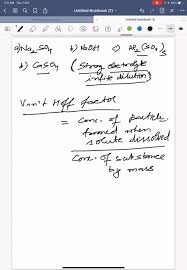 Untitled Notebook (1)
a) Na2SO4 b) NaOH c) Al2(SO4)3
d) CaSO4 (Strong electrolyte
infinite dilution)
Van't Hoff factor
= Conc. of particle
formed when
solute dissolved
Conc. of substance
by mass